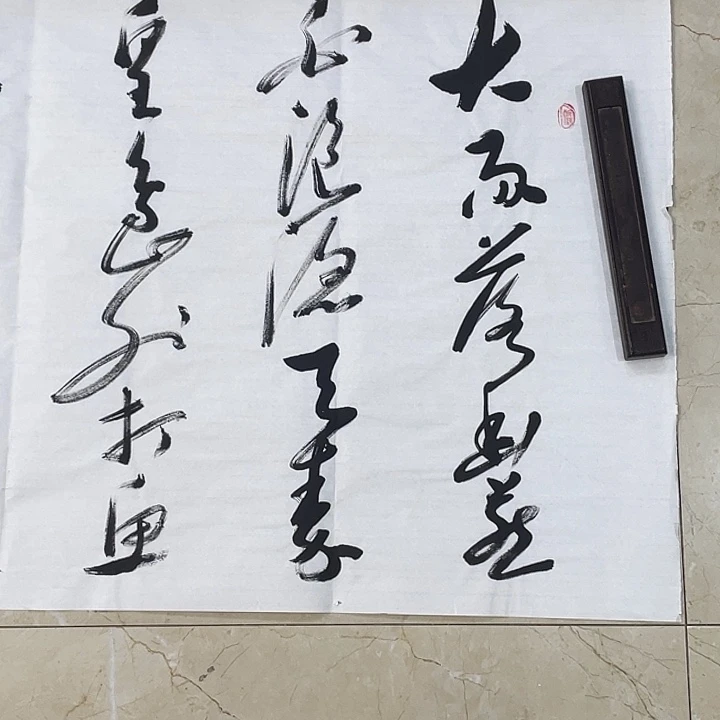 大雨落幽燕
白浪滔天秦
皇岛外打鱼